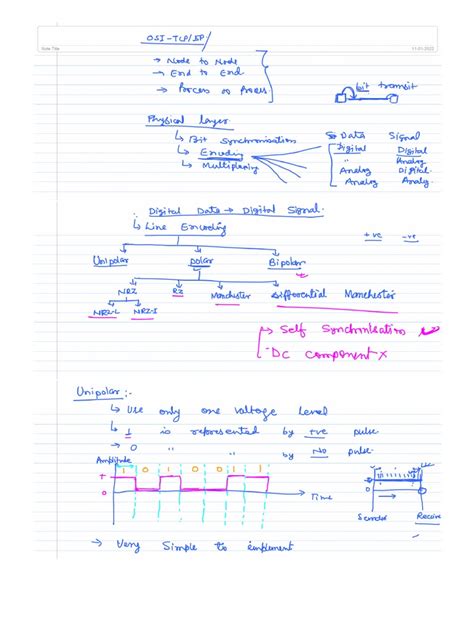 Note Title
11-01-2022
OSI-TCP/IP/
→ Node to Node
→ End to End
→ Process to Process
bit transit
Physical layer
↳ Bit Synchronisation
↳ Encoding
↳ Multiplexing
Data Signal
Digital Digital
" Analog
Analog Digital
Analog Analog
Digital Data → Digital Signal.
↳ Line Encoding
+ve -ve
Unipolar polar Bipolar
NRZ RZ Manchester Differential Manchester
NRZ-L NRZ-I
→ Self Synchronisation
DC component x
Unipolar:-
↳ Use only one voltage level
↳ 1 is represented by +ve pulse
→ 0 " " by No pulse.
Amplitude
1 0 1 0 0 1 1
+
0
Time
0
Sender
→ Very Simple to implement